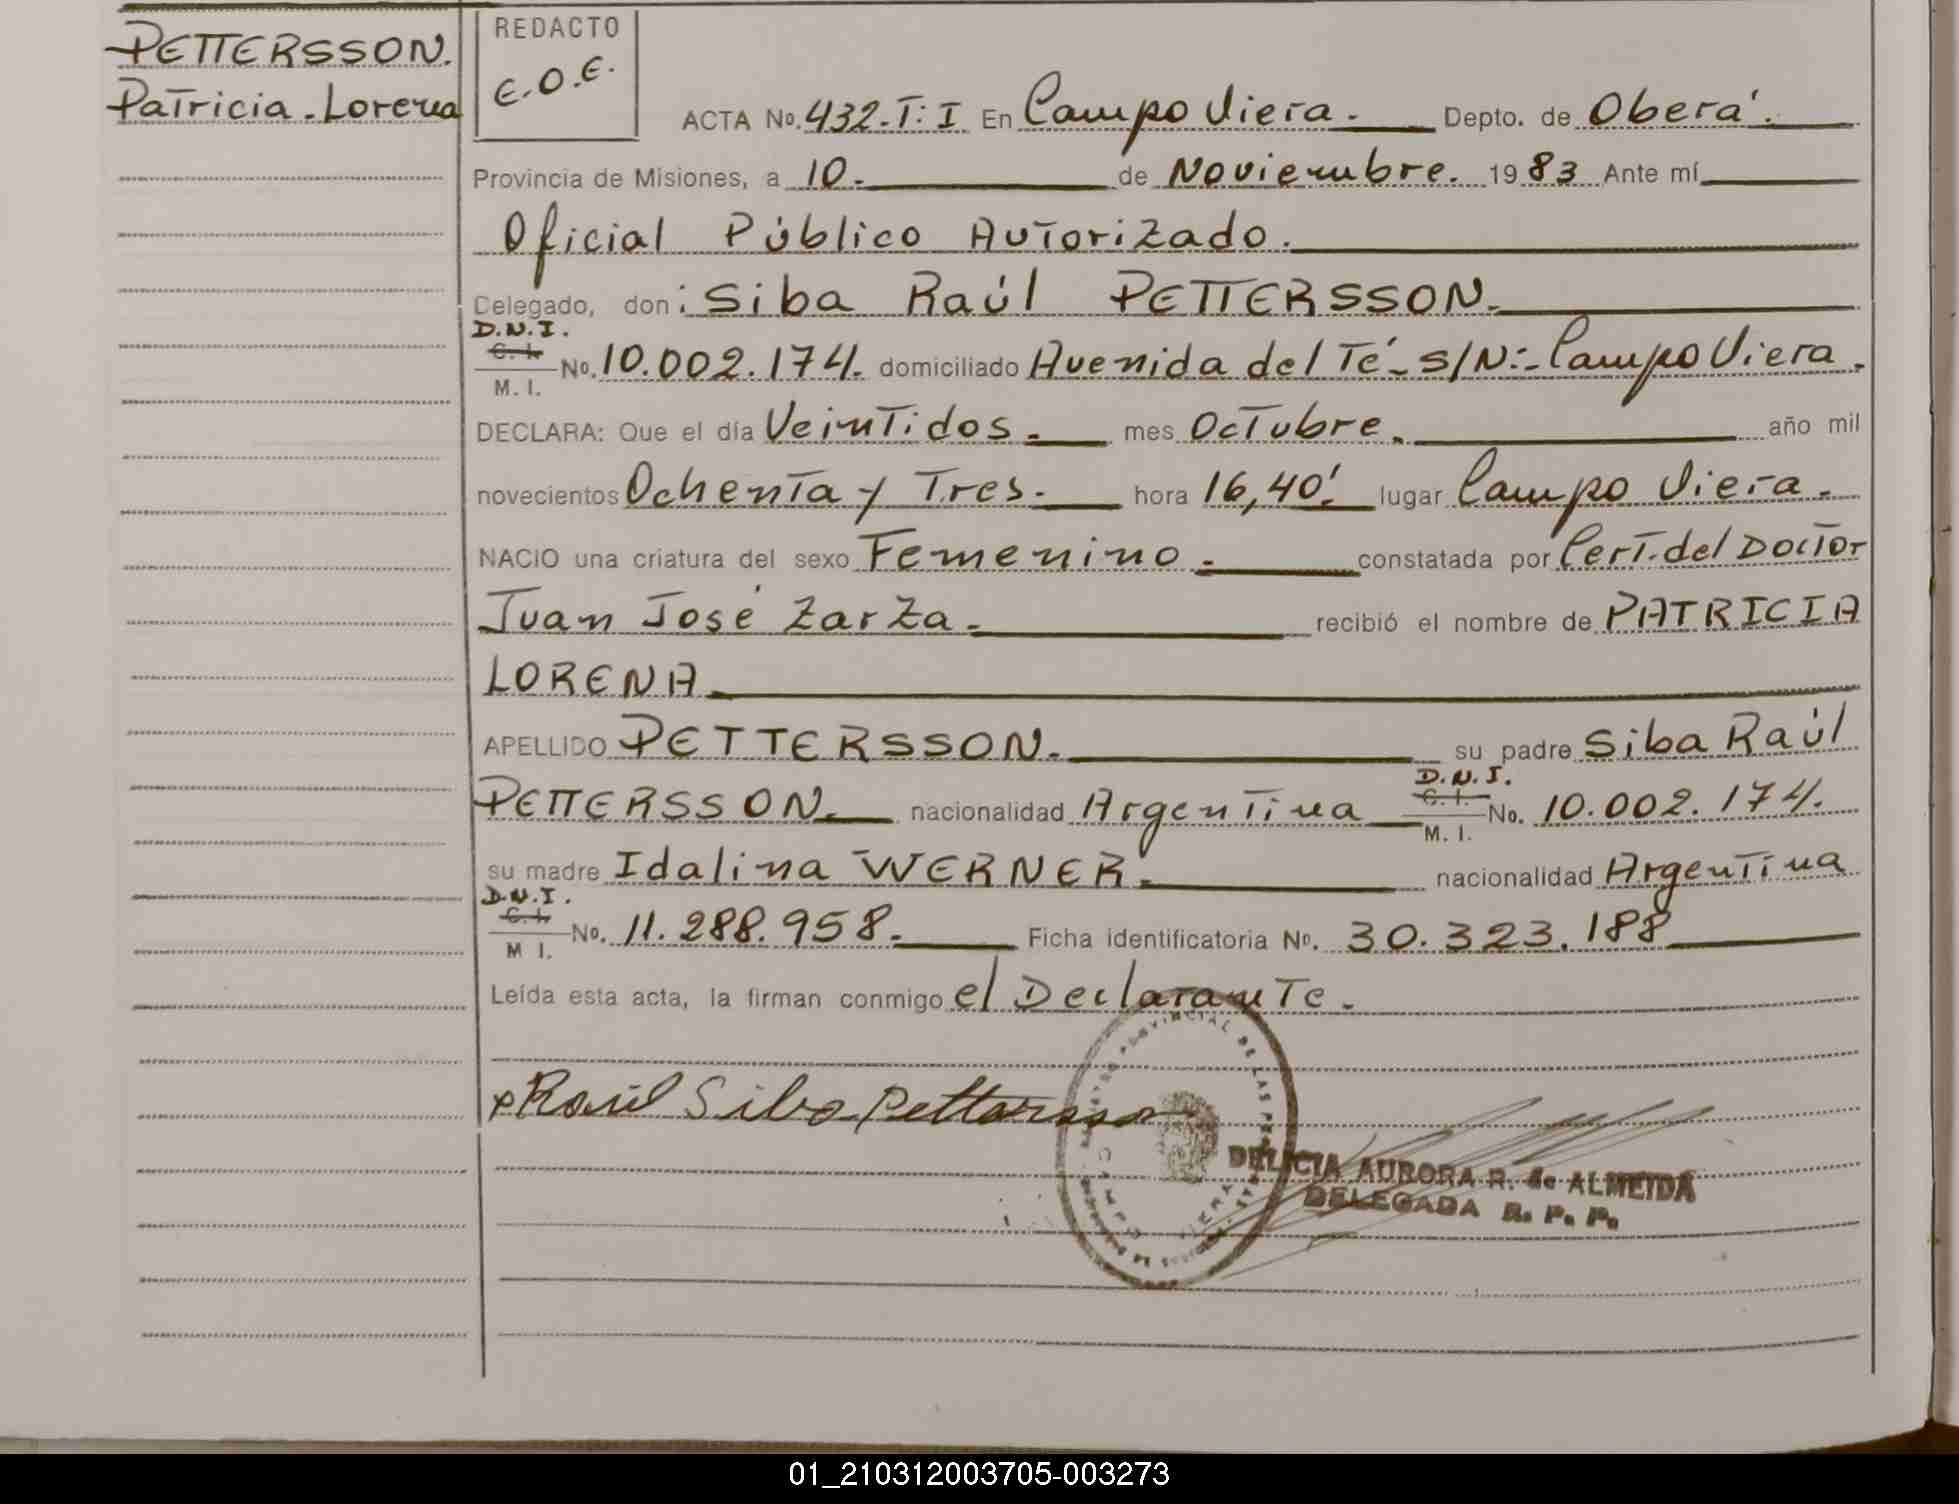 PETTERSSON.
Patricia-Lorena
REDACTO
E.O.E.
ACTA No. 432-T: I En Campo Viera. Depto. de Oberá.
Provincia de Misiones, a 10. de Noviembre. 1983 Ante mí
Oficial Público Autorizado.
Delegado, don: Siba Raúl PETTERSSON.
D.N.I.
C. I.
M. I.
No. 10.002.174. domiciliado Avenida del Té- S/N:- Campo Viera.
DECLARA: Que el día Veintidos. mes Octubre. año mil
novecientos Ochenta y Tres. hora 16,40' lugar Campo Viera.
NACIO una criatura del sexo Femenino. constatada por Cert. del Doctor
Juan José Zarza. recibió el nombre de PATRICIA
LORENA
APELLIDO PETTERSSON. su padre Siba Raúl
PETTERSSON. nacionalidad Argentina D.N.I. C. I. M. I. No. 10.002.174.
su madre Idalina WERNER. nacionalidad Argentina
D.N.I.
C. I.
M I.
No. 11.288.958. Ficha identificatoria No. 30.323.188
Leída esta acta, la firman conmigo el Declarante.
Raúl Siba Pettersson
PROVINCIAL DE LAS
CAMPO VIERA
DELICIA AURORA R. de ALMEIDA
DELEGADA R. P. P.
01_210312003705-003273